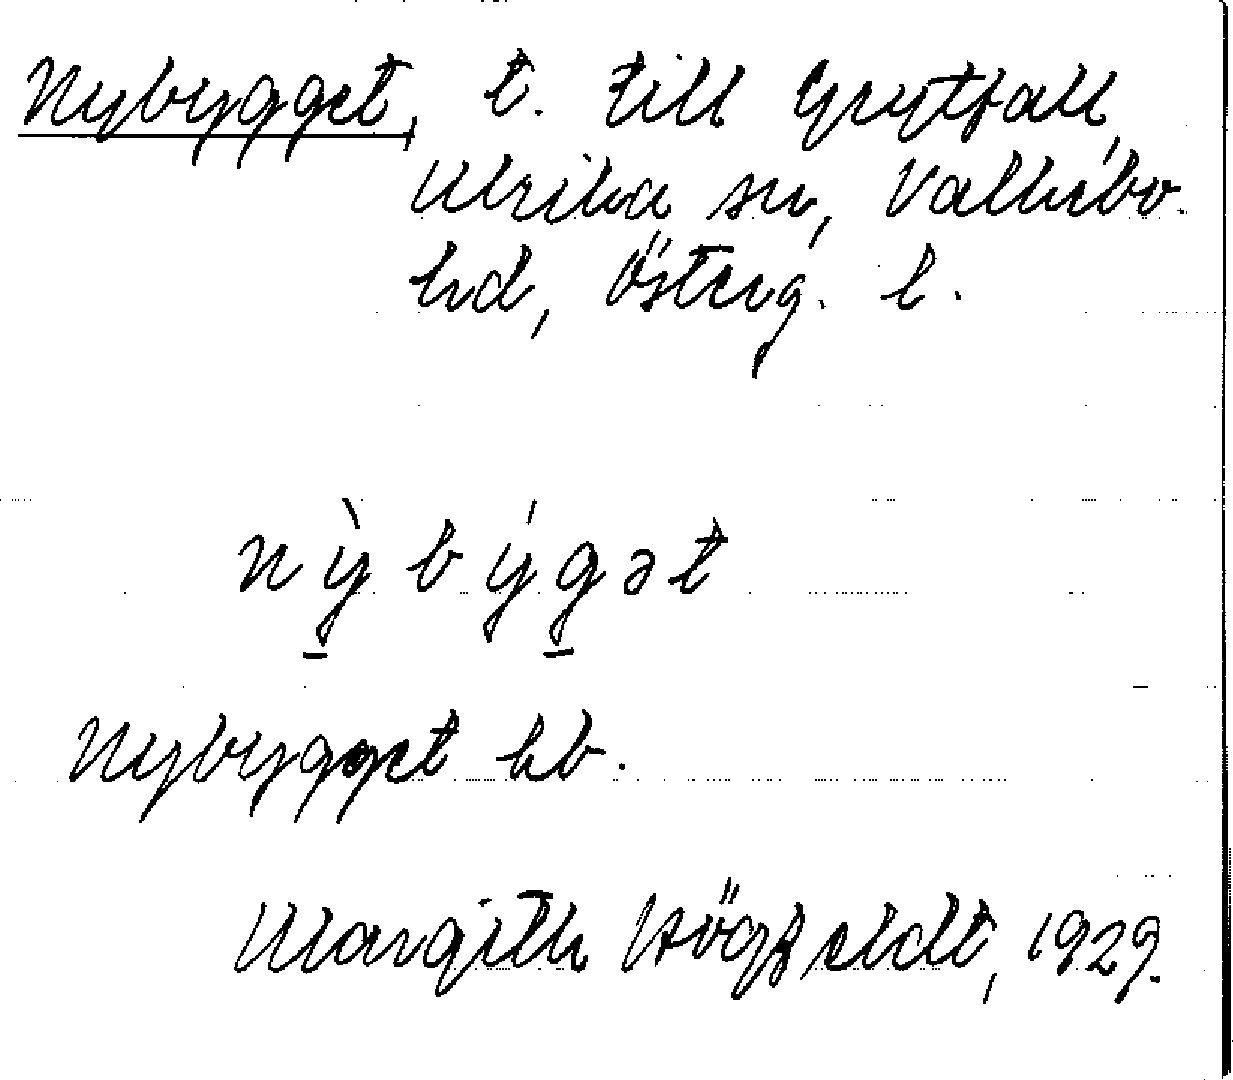 Nybygget, t. till Grytfall,
Ulrika sn, Valkebo
hd, Österg. l.
nỳbýgət
Nybygget hb.
Margith Högfeldt, 1929.